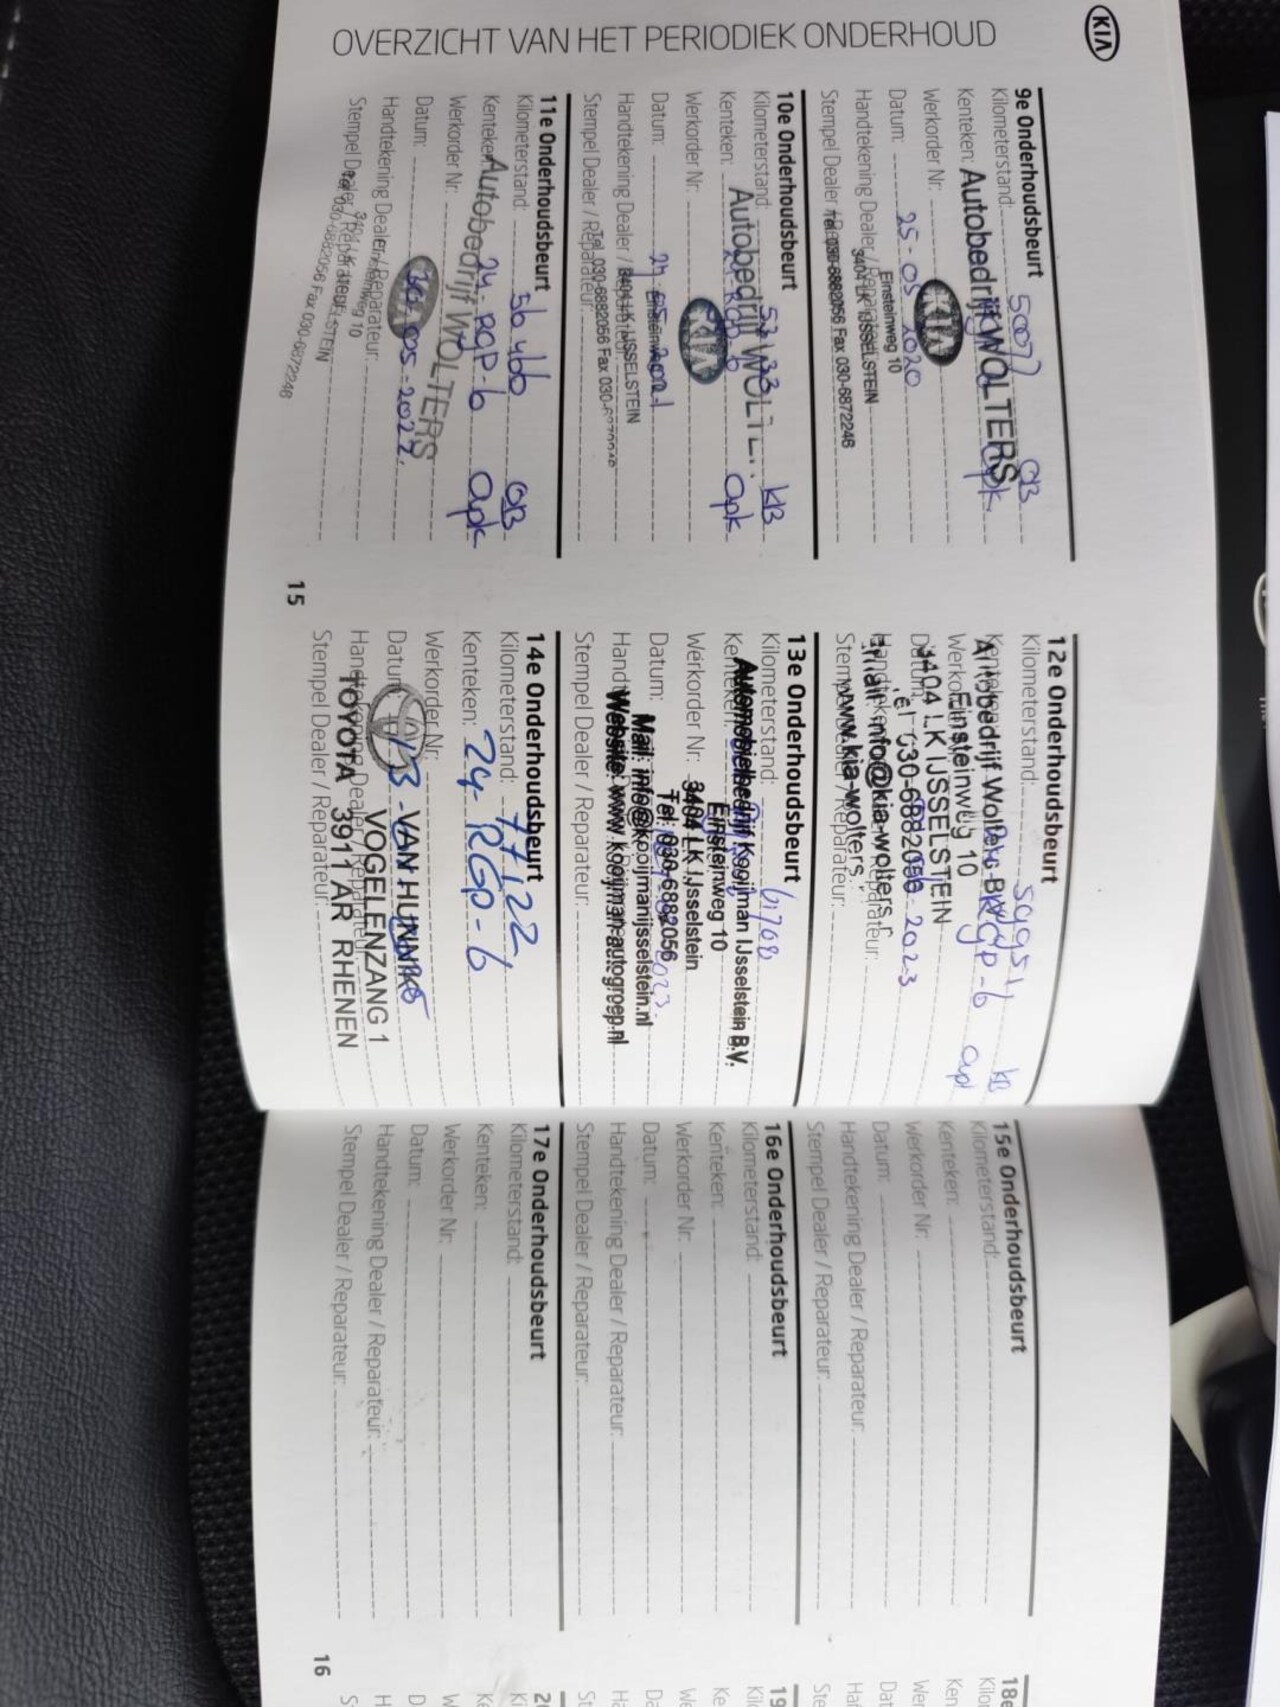 KIA
OVERZICHT VAN HET PERIODIEK ONDERHOUD
9e Onderhoudsbeurt
Kilometerstand: 50077 OB
Kenteken: Autobedrijf WOLTERS apk
Werkorder Nr: KIA
Datum: 25-05-2020
Einsteinweg 10
Handtekening Dealer / Reparateur:
3404 LK IJSSELSTEIN
Stempel Dealer / Reparateur:
Tel. 030-6882056 Fax 030-6872246
10e Onderhoudsbeurt
Kilometerstand: KB
Kenteken: Autobedrijf apk
Werkorder Nr: KIA
Datum:
Einsteinweg
Handtekening Dealer / Reparateur:
3404 LK IJSSELSTEIN
Tel. 030-6882056 Fax
Stempel Dealer / Reparateur:
11e Onderhoudsbeurt
Kilometerstand: 56466 OB
Kenteken: 24-RGP-6 apk
Autobedrijf WOLTERS
Werkorder Nr:
Datum: 05-2022
Handtekening Dealer / Reparateur:
10
Stempel Dealer / Reparateur:
030-6882056 Fax 030-6872246
15
12e Onderhoudsbeurt
Kilometerstand: KB
Kenteken: RGP-6 apk
Autobedrijf Wolters B.V.
Werkorder
Einsteinweg 10
3404 LK IJSSELSTEIN
Datum: 2023
030-6882056
Handtekening Dealer / Reparateur:
info@kia-wolters.
Stempel Dealer / Reparateur:
www.kia-wolters.
13e Onderhoudsbeurt
Kilometerstand: 61708
Kenteken:
Automobielbedrijf Kooijman IJsselstein B.V.
Einsteinweg 10
Werkorder Nr:
3404 LK IJsselstein
Tel: 030-6882056
Datum:
Mail: info@kooijmanijsselstein.nl
Website: www.kooijman-autogroep.nl
Stempel Dealer / Reparateur:
14e Onderhoudsbeurt
Kilometerstand: 77122
Kenteken: 24-RGP-6
Werkorder Nr:
Datum:
VAN HUNNIK
VOGELENZANG 1
Handtekening Dealer / Reparateur:
TOYOTA 3911 AR RHENEN
Stempel Dealer / Reparateur:
15e Onderhoudsbeurt
Kilometerstand:
Kenteken:
Werkorder Nr:
Datum:
Handtekening Dealer / Reparateur:
Stempel Dealer / Reparateur:
16e Onderhoudsbeurt
Kilometerstand:
Kenteken:
Werkorder Nr:
Datum:
Handtekening Dealer / Reparateur:
Stempel Dealer / Reparateur:
17e Onderhoudsbeurt
Kilometerstand:
Kenteken:
Werkorder Nr:
Datum:
Handtekening Dealer / Reparateur:
Stempel Dealer / Reparateur:
16
18e